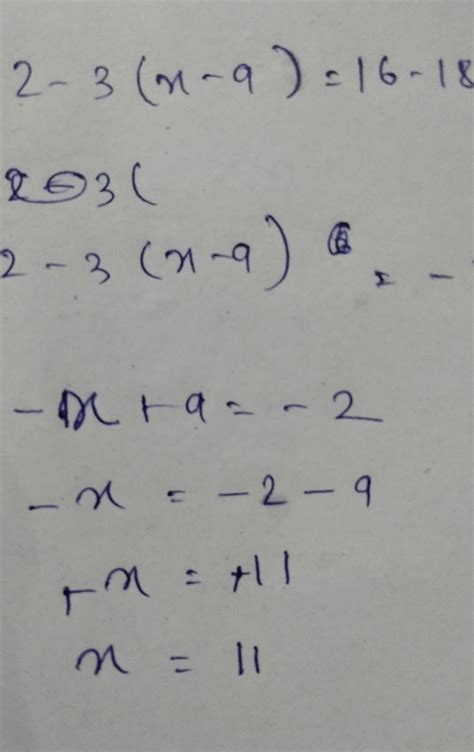 2 - 3 (x - 9) = 16 - 18
3 (
2 - 3 (x - 9) = -
- x + 9 = - 2
- x = - 2 - 9
+ x = + 11
x = 11